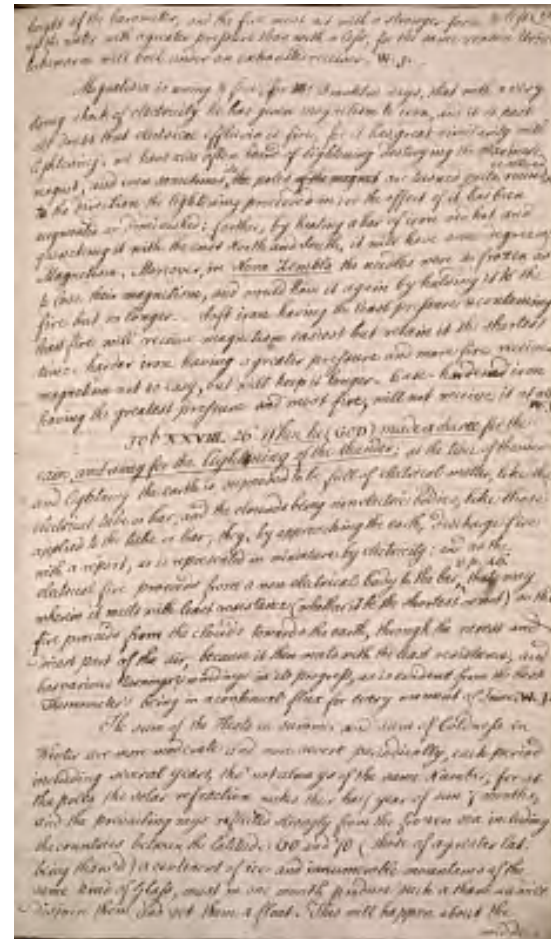 height of the barometer, and the fire must act with a stronger force to lift
of the water with a greater pressure than with a less, for the same reason
lukewarm will boil under an exhausted receiver. W. J.
Magnetism is owing to fire; for Mr. Franklin says, that with a very
strong shock of electricity he has given magnetism to iron, and it is past
all doubt that electrical effluvia is fire, for it has great similarity with
lightening. we have also often heard of lightening destroying the
magnet, and even sometimes, the poles of the magnet are turned quite
to the direction the lightening proceeded in or the effect of it has been
augmented or diminished: farther, by heating a bar of iron red hot and
quenching it with the ends North and South, it will have some degree of
Magnetism. Moreover, in Nova Zembla the needles were so frozen as
to lose their magnetism, and would have it again by holding it to the
fire but no longer. Soft iron having the least pressure & containing
least fire will receive magnetism easiest but retain it the shortest
time. harder iron having a greater pressure and more fire receives
magnetism not so easy, but will keep it longer. Case-hardened iron
having the greatest pressure and most fire, will not receive it at all
W. J.
JOB XXVIII. 26. When he (GOD) made a decree for the
rain, and a way for the lightening of the thunder; at the time of thunder
and lightning the earth is supposed to be full of electrical matter, like the
electrical tube or bar, and the clouds being nonelectric bodies, like those
applied to the tube or bar, they, by approaching the earth, discharge fire
with a report, as is represented in miniature by electricity: and as the
electrical fire proceeds from a non electrical body to the bar, that way
wherein it meets with least resistance (whether it be the shortest or not) so the
fire proceeds from the clouds towards the earth, through the rarest and
part of the air, because it then meets with the least resistance, and
has various turnings & windings in its progress, as is evident from the best
Thermometer's being in a continual flux for every moment of time. W. J.
The sum of the Heats in summer and sum of Coldness in
Winter are more moderate and more severe periodically, each period
including several years, tho' not always of the same Number; for at
the poles the solar refraction makes their half year of sun 7 months,
and the prevailing rays reflected strongly from the frozen sea including
the countries between the latitudes 60 and 70 (those of a greater lat.
being thaw'd) a continent of ice and innumerable mountains of the
same kind of Glass, must in one month produce such a thaw as will
disjoin them and set them a float. This will happen about the
middle